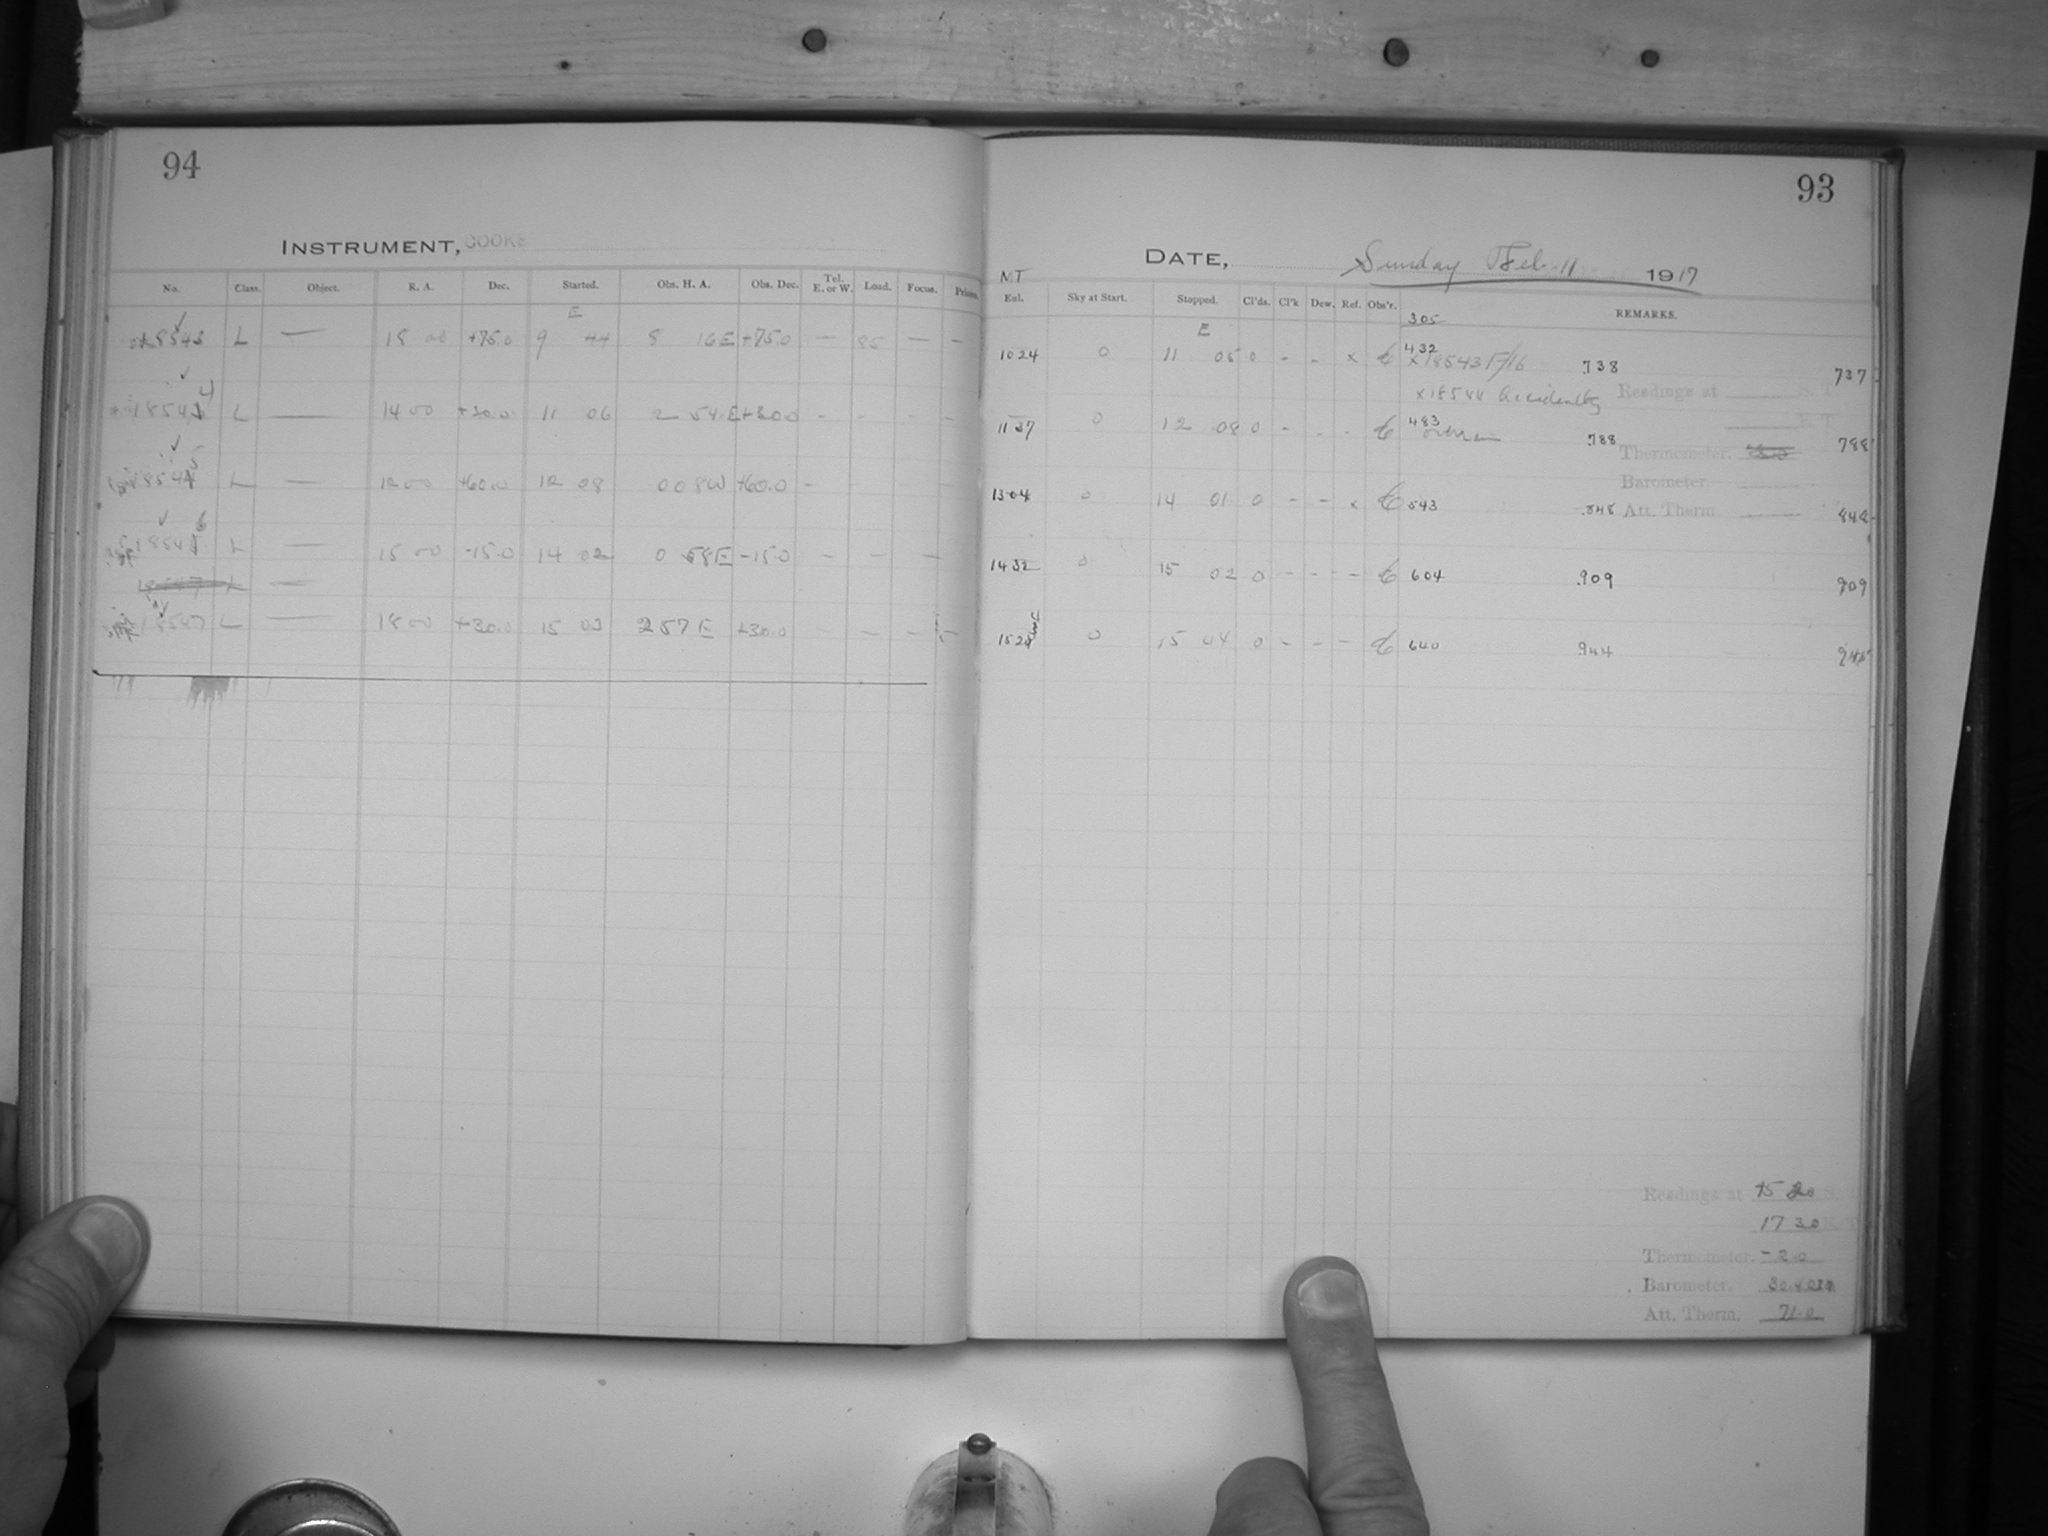 94
INSTRUMENT, COOKE
No. Class. Object. R. A. Dec. Started. Obs. H. A. Obs. Dec. Tel. E. or W. Load. Focus. Prisms.
E
18543 L — 18 00 +75.0 9 44 8 16 E +75.0 — 85 — —
18544 L — 14 00 +30.0 11 06 2 54 E +30.0 - - - -
18545 L — 12 00 +60.0 12 08 0 08 W +60.0 -
18546 L — 15 00 -15.0 14 02 0 58 E -15.0 - - —
18547 L —
18547 L — 18 00 +30.0 15 03 2 57 E +30.0 - - -
93
DATE, Sunday Feb. 11 1917
M.T
Exl. Sky at Start. Stopped. Cl'ds. Cl'k Dew. Ref. Obs'r. REMARKS.
E 305
10 24 0 11 05 0 - - x 432 .738 737
x 18543 F/16
x 18544 Accidently
Readings at S. T.
E. T.
11 37 0 12 08 0 - - - 483 .788 788
Thermometer.
Barometer
13 04 0 14 01 0 - - x 543 .848 848
Att. Therm.
14 32 0 15 02 0 - - - 604 .909 909
15 24 0 15 04 0 - - - 640 .944
Readings at 15 20
17 30
Thermometer. -2.0
Barometer.
Att. Therm. 71.0